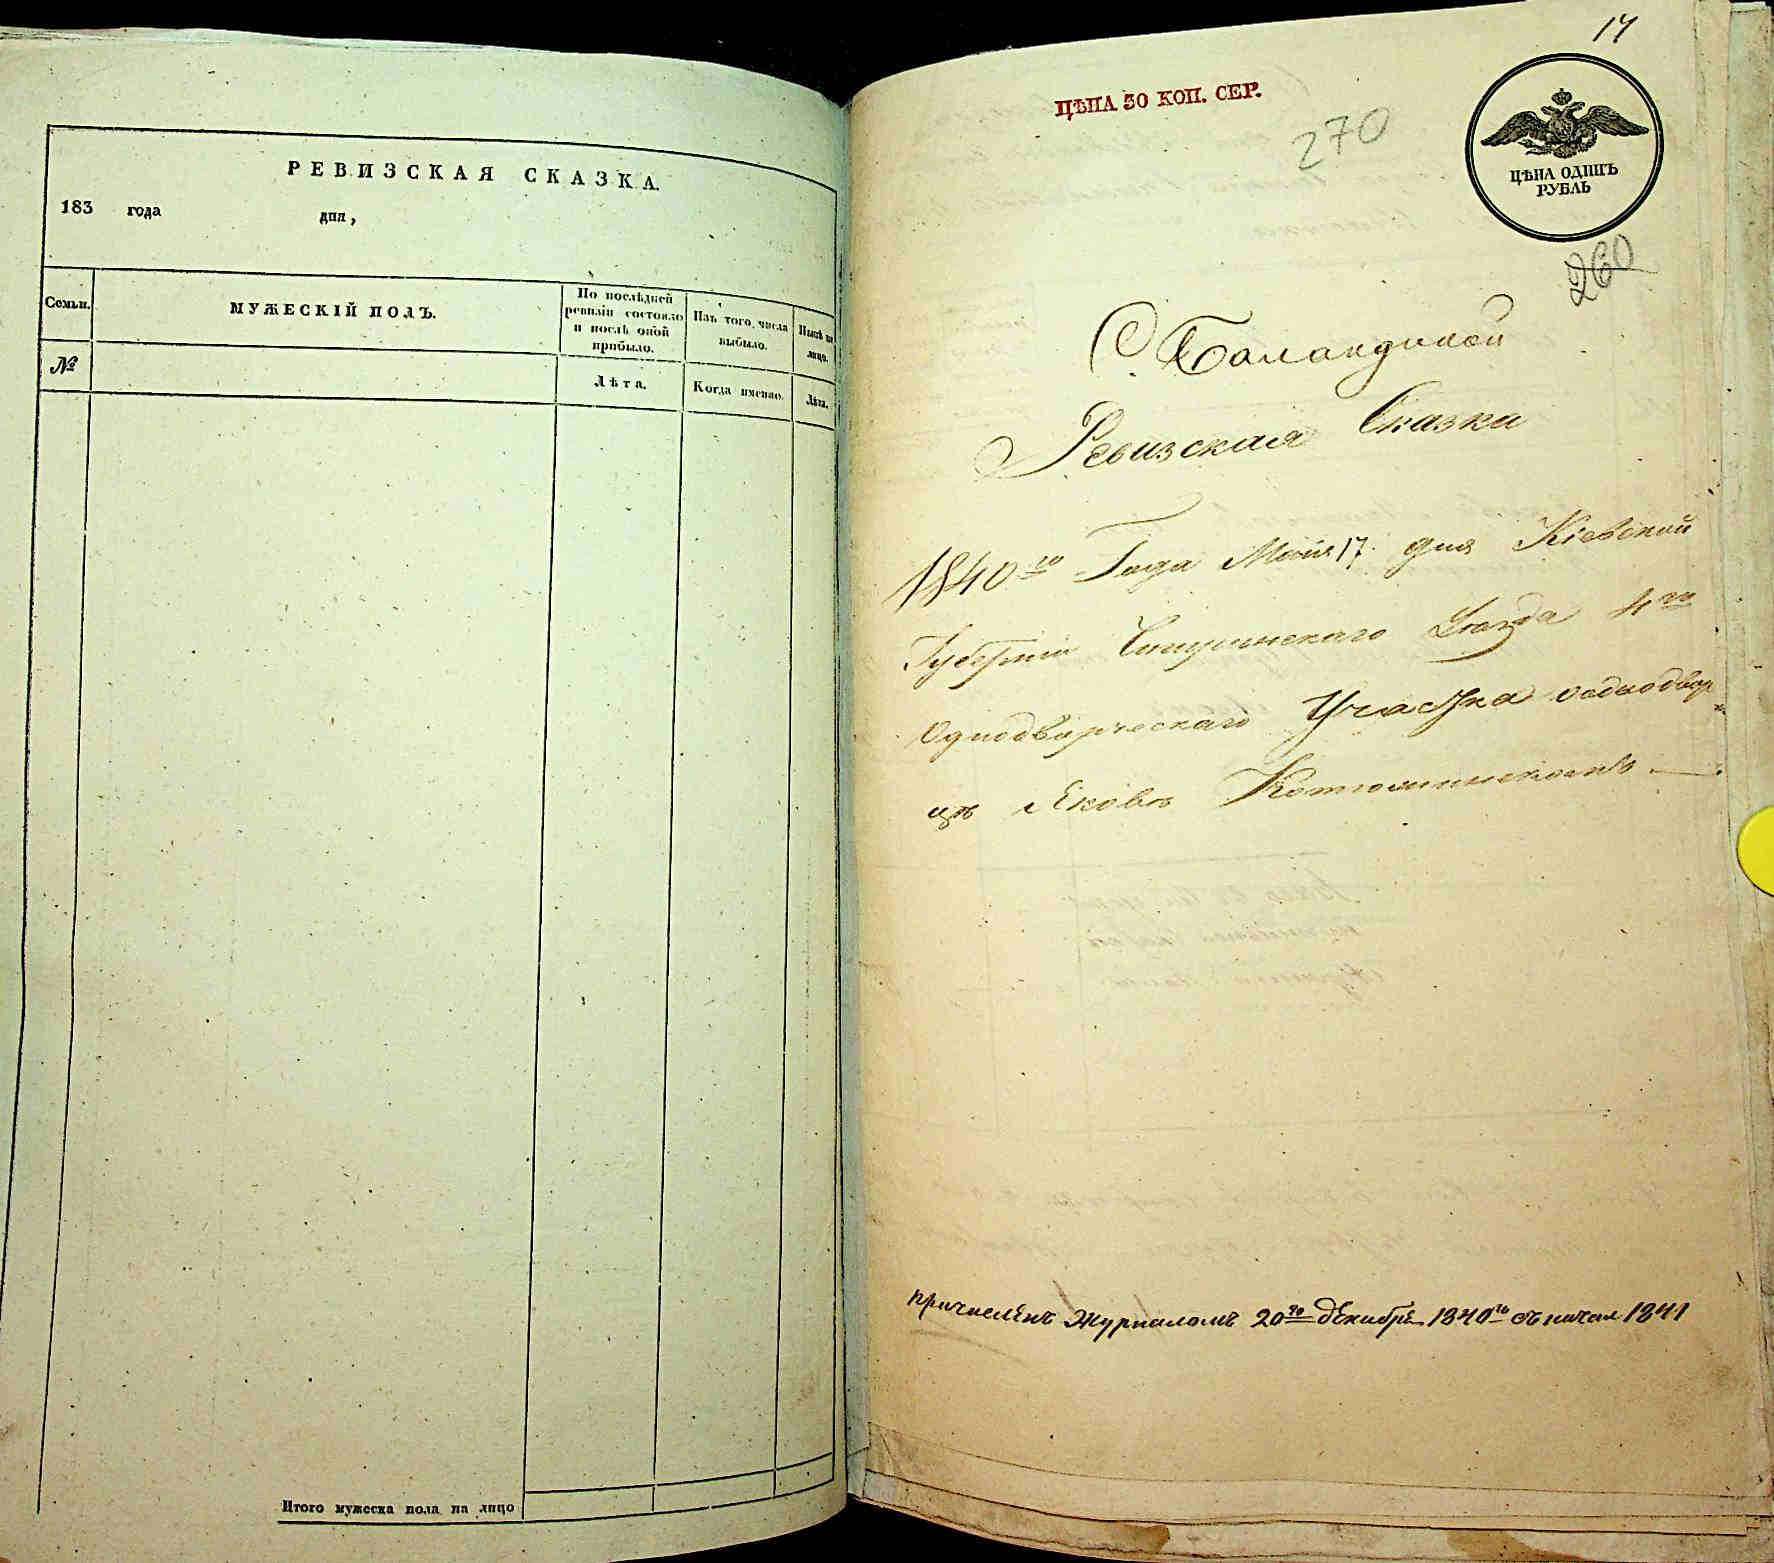 РЕВИЗСКАЯ СКАЗКА.
183 года дня,
Семьи.
МУЖЕСКІЙ ПОЛЪ.
По послѣдней ревизіи состояло и послѣ оной прибыло.
Изъ того числа выбыло.
Нынѣ на лицо.
№
Лѣта.
Когда именно.
Лѣта.
Итого мужеска пола на лицо
17
ЦѢНА 30 КОП. СЕР.
270
ЦѢНА ОДИНЪ
РУБЛЬ
260
С. Баландиной
Ревизская Сказка
1840го Года Маія 17 дня Кіевской
Губерніи Чигринскаго Уѣзда 4го
Однодворческаго Участка о однодвор
цѣ Яковѣ Котюжинскомъ
причисленъ Журналомъ 20го декабря 1840го съ начал 1841